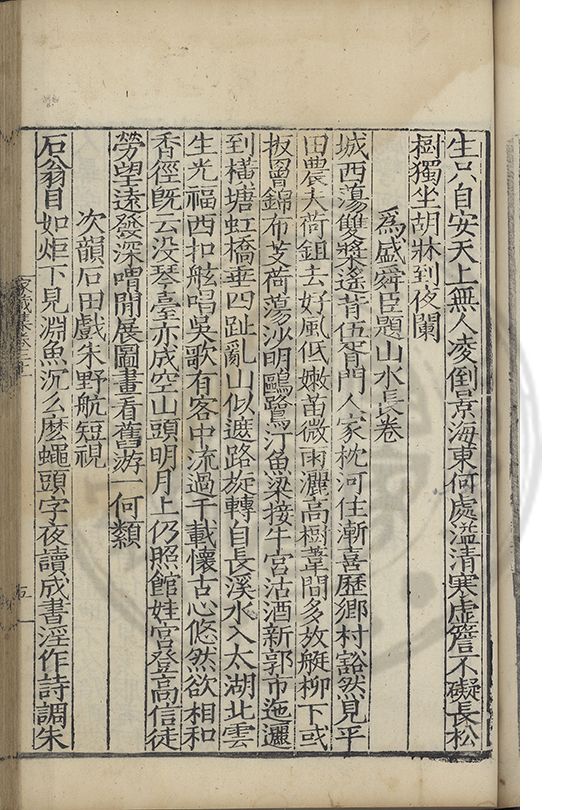 生只自安天上無人凌倒景海東何處溢清寒虛簷不礙長松
樹獨坐胡牀到夜闌
為盛舜臣題山水長卷
城西蕩雙槳遙背伍胥門人家枕河住漸喜歷鄉村豁然見平
田農夫荷鉏去好風低嫩苗微雨灑高樹葦間多放艇柳下或
扳罾錦布芰荷蕩沙明鷗鷺汀魚梁接牛宮沽酒新郭市迤邐
到橫塘虹橋垂四趾亂山似遮路旋轉自長溪水入太湖北雲
生光福西扣舷唱吳歌有客中流過千載懷古心悠然欲相和
香徑旣云没琴臺亦成空山頭明月上仍照館娃宮登高信徒
勞望遠發深喟閒展圖畫看舊游一何類
次韻石田戲朱野航短視
石翁目如炬下見淵魚沉么麽蠅頭字夜讀成書淫作詩調朱
家藏集卷三
五